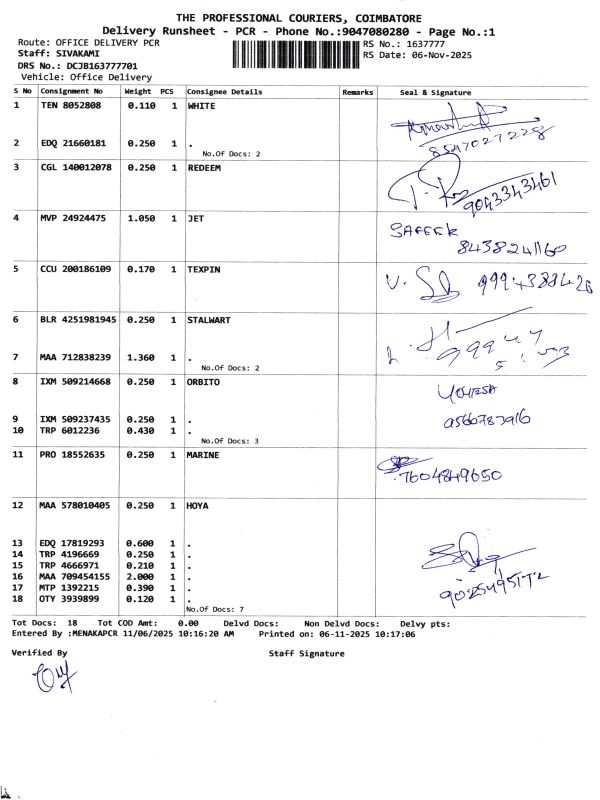 THE PROFESSIONAL COURIERS, COIMBATORE
Delivery Runsheet - PCR - Phone No.:9047080280 - Page No.:1
Route: OFFICE DELIVERY PCR RS No.: 1637777
Staff: SIVAKAMI RS Date: 06-Nov-2025
DRS No.: DCJB163777701
Vehicle: Office Delivery
S No Consignment No Weight PCS Consignee Details Remarks Seal & Signature
1 TEN 8052808 0.110 1 WHITE
2 EDQ 21660181 0.250 1 .
8547027228
No.Of Docs: 2
3 CGL 140012078 0.250 1 REDEEM
9043343461
4 MVP 24924475 1.050 1 JET
SAFEEK
8438241160
5 CCU 200186109 0.170 1 TEXPIN
6 BLR 4251981945 0.250 1 STALWART
7 MAA 712838239 1.360 1 .
No.Of Docs: 2
8 IXM 509214668 0.250 1 ORBITO
9 IXM 509237435 0.250 1 .
10 TRP 6012236 0.430 1 .
No.Of Docs: 3
11 PRO 18552635 0.250 1 MARINE
7604849650
12 MAA 578010405 0.250 1 HOYA
13 EDQ 17819293 0.600 1 .
14 TRP 4196669 0.250 1 .
15 TRP 4666971 0.210 1 .
16 MAA 709454155 2.000 1 .
17 MTP 1392215 0.390 1 .
18 OTY 3939899 0.120 1 .
No.Of Docs: 7
Tot Docs: 18 Tot COD Amt: 0.00 Delvd Docs: Non Delvd Docs: Delvy pts:
Entered By :MENAKAPCR 11/06/2025 10:16:20 AM Printed on: 06-11-2025 10:17:06
Verified By Staff Signature